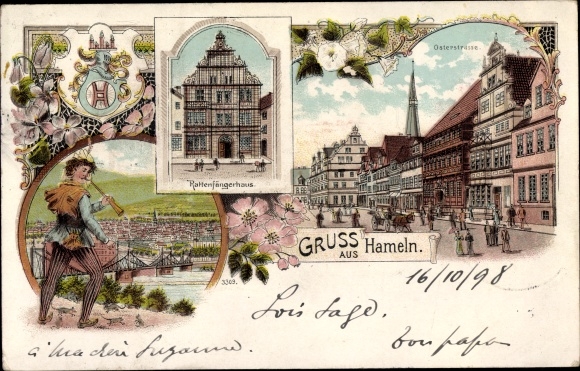 Osterstrasse.
Rattenfängerhaus.
GRUSS
AUS Hameln.
3309.
16/10/98
Sois sage.
bon papa
à ma chère Suzanne.